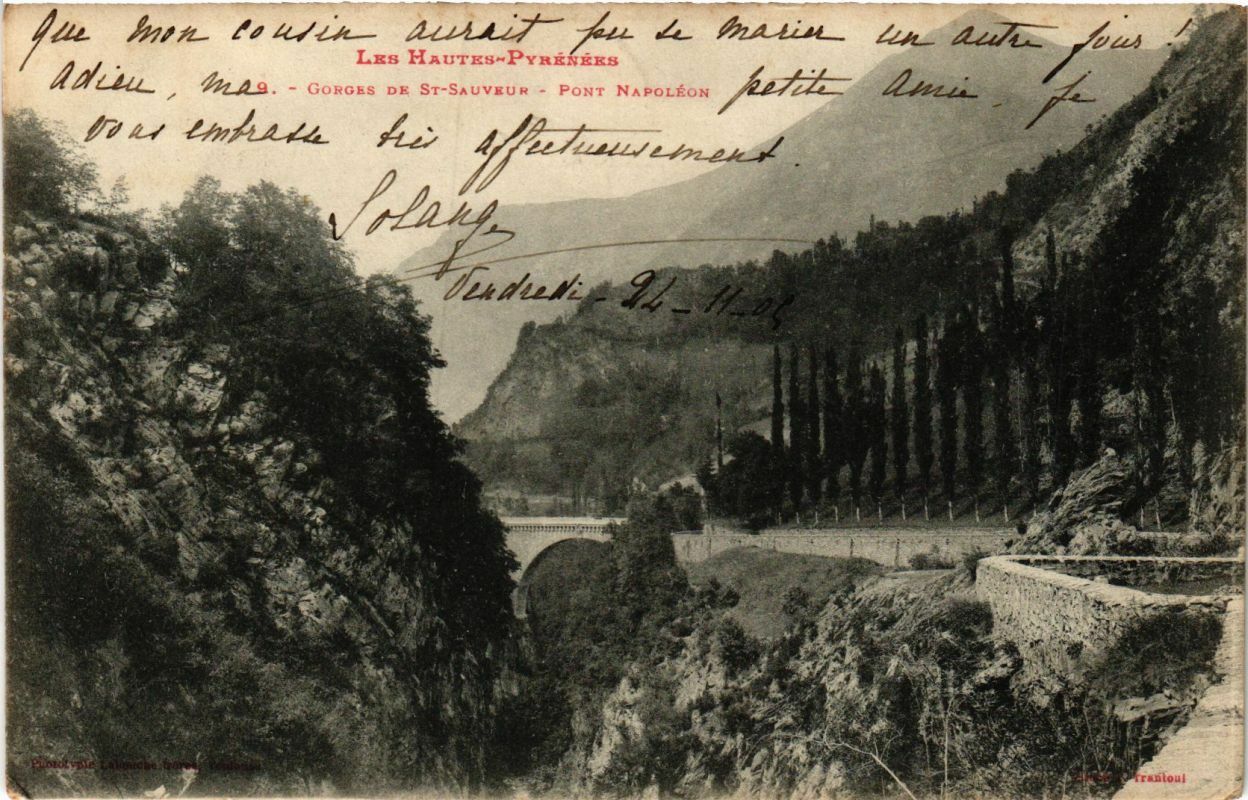 Que mon cousin aurait pu se marier un autre jour!
LES HAUTES-PYRÉNÉES
Adieu, ma petite Amie, je
9. - GORGES DE ST-SAUVEUR - PONT NAPOLÉON
vous embrasse très affectueusement.
Solange
Vendredi - 24-11-05
Phototypie Labouche frères, Toulouse
Trantoul